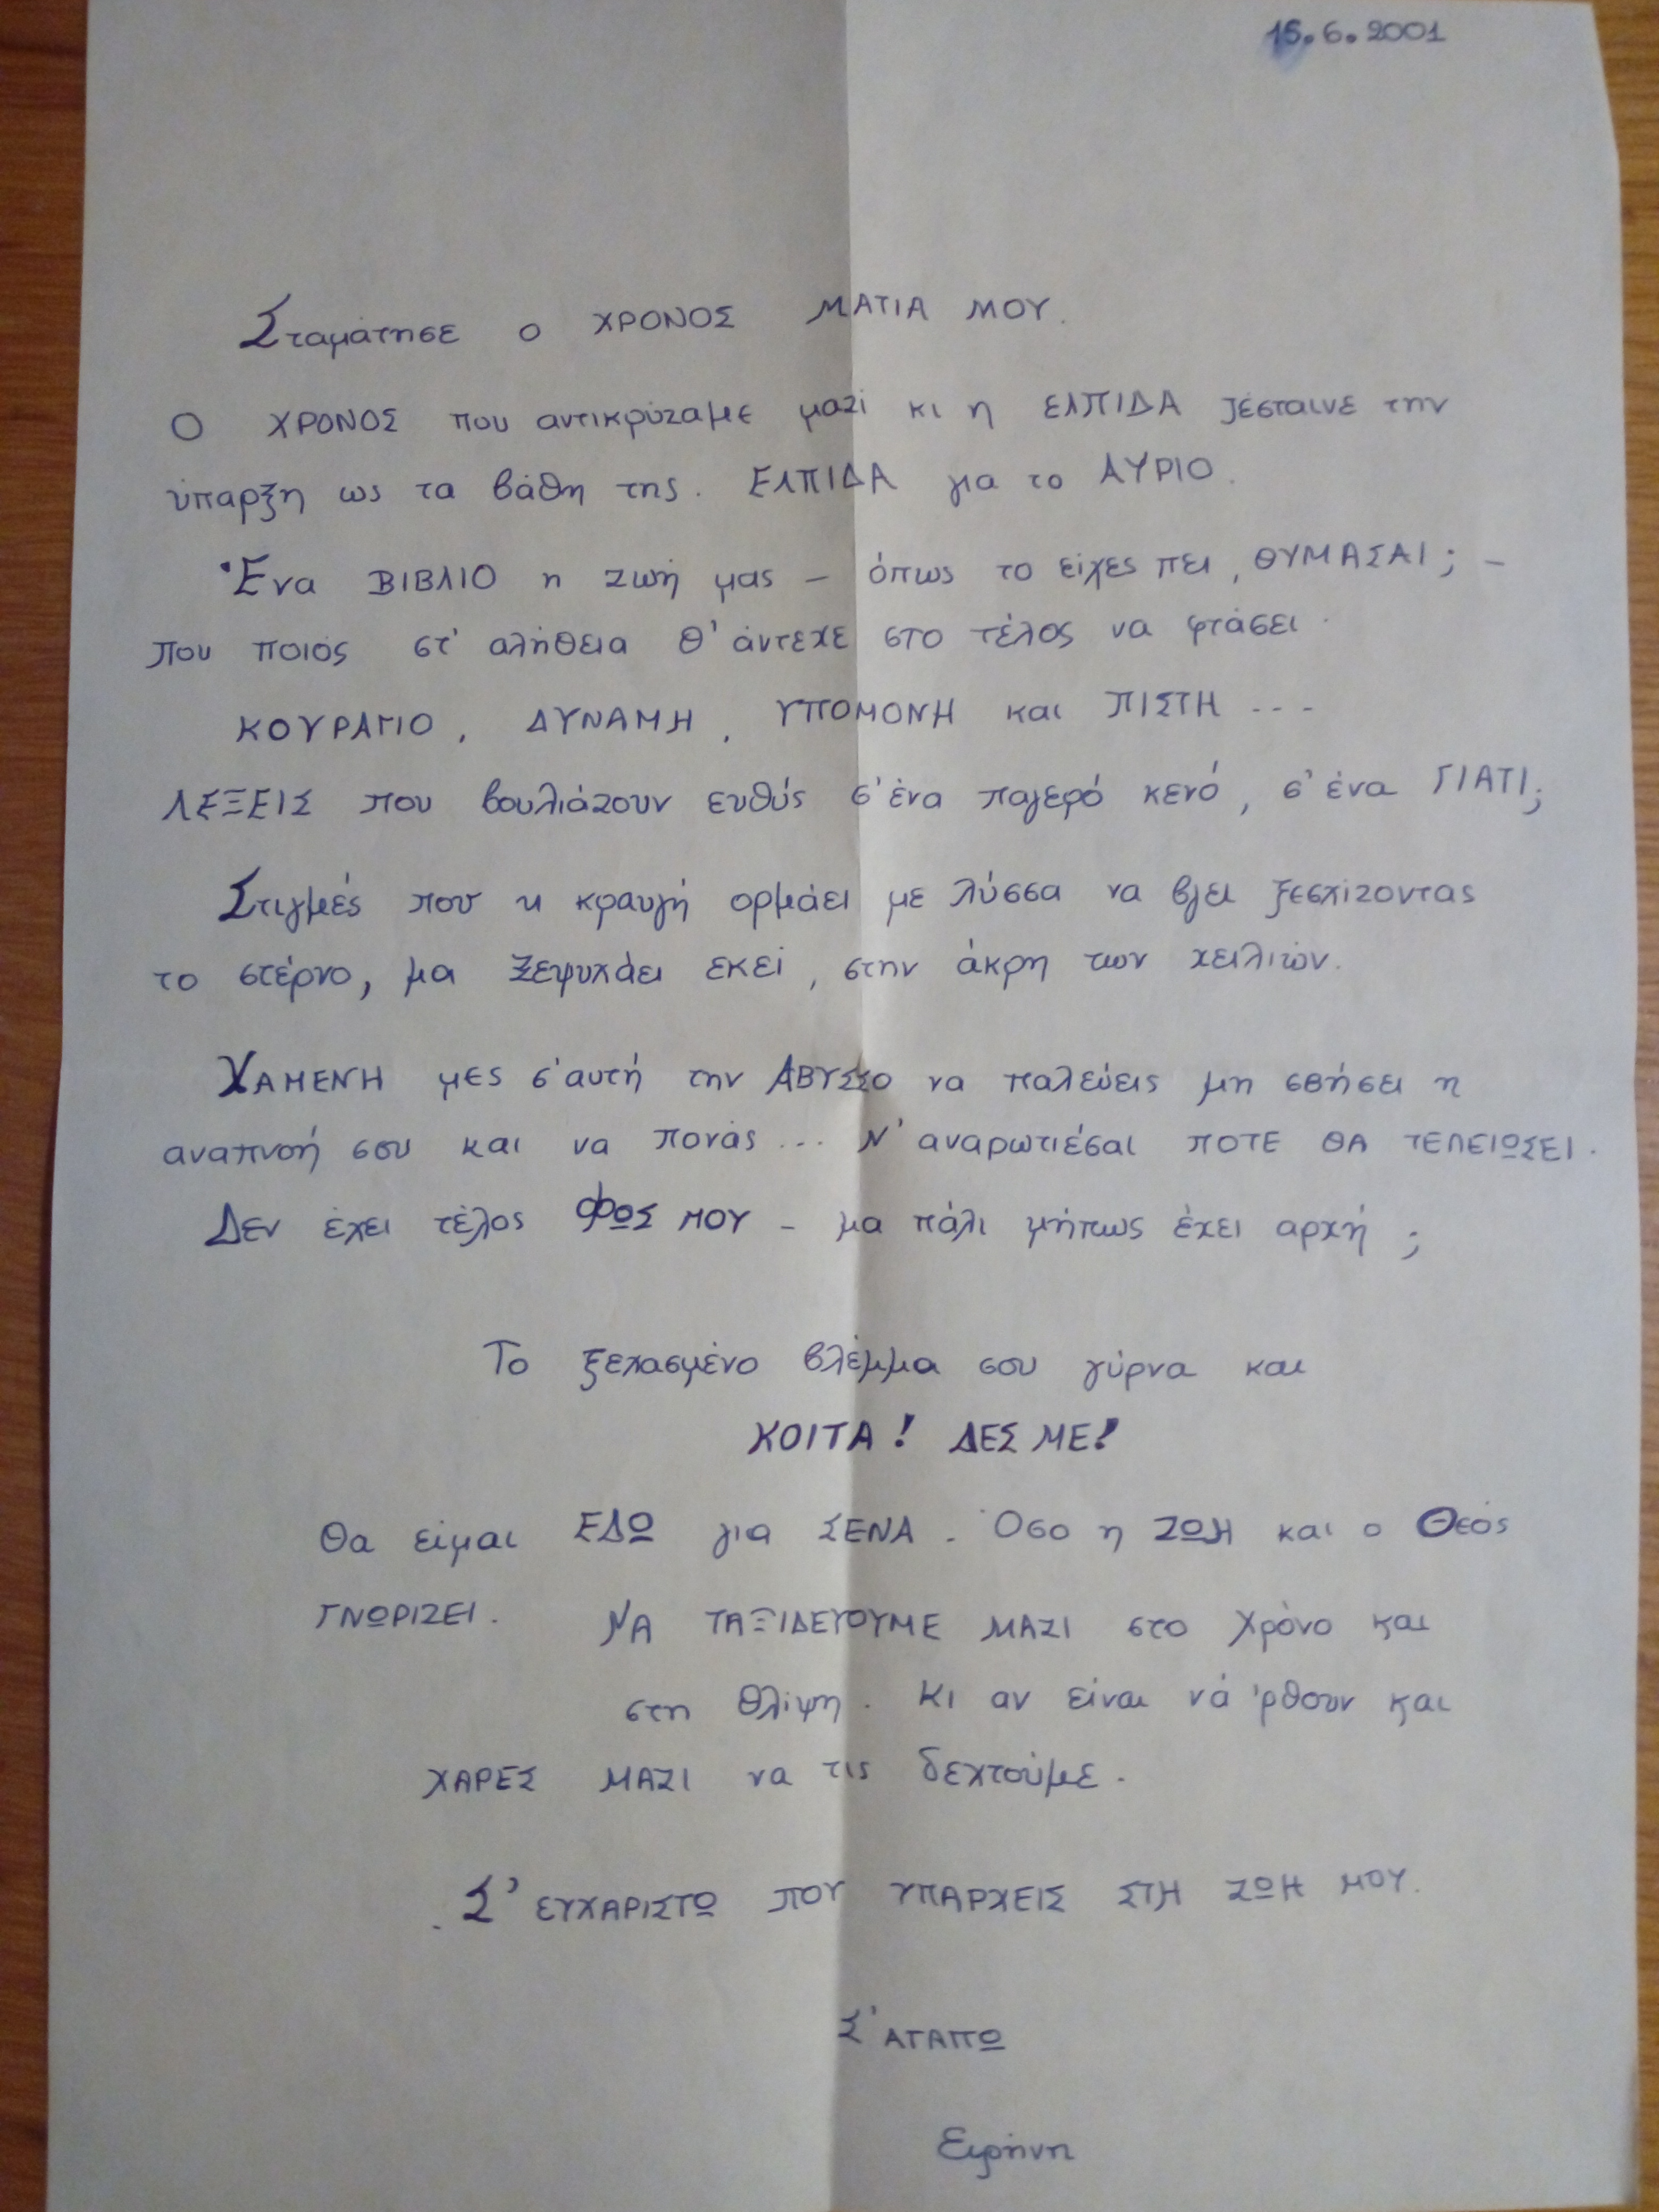 15.6.2001
Σταμάτησε ο ΧΡΟΝΟΣ ΜΑΤΙΑ ΜΟΥ.
Ο ΧΡΟΝΟΣ που αντικρύζαμε μαζί κι η ΕΛΠΙΔΑ ζέσταινε την
ύπαρξη ως τα βάθη της. ΕΛΠΙΔΑ για το ΑΥΡΙΟ.
Ένα ΒΙΒΛΙΟ η ζωή μας – όπως το είχες πει, ΘΥΜΑΣΑΙ; –
που ποιός στ' αλήθεια θ' άντεχε στο τέλος να φτάσει.
ΚΟΥΡΑΓΙΟ, ΔΥΝΑΜΗ, ΥΠΟΜΟΝΗ και ΠΙΣΤΗ ---
ΛΕΞΕΙΣ που βουλιάζουν ευθύς σ' ένα παγερό κενό, σ' ένα ΓΙΑΤΙ;
Στιγμές που η κραυγή ορμάει με λύσσα να βγει ξεσχίζοντας
το στέρνο, μα ξεψυχάει εκεί, στην άκρη των χειλιών.
ΧΑΜΕΝΗ μες σ' αυτή την ΑΒΥΣΣΟ να παλεύεις μη σβήσει η
αναπνοή σου και να πονάς... Ν' αναρωτιέσαι ΠΟΤΕ ΘΑ ΤΕΛΕΙΩΣΕΙ.
Δεν έχει τέλος ΦΩΣ ΜΟΥ – μα πάλι μήπως έχει αρχή;
Το ξεχασμένο βλέμμα σου γύρνα και
ΚΟΙΤΑ! ΔΕΣ ΜΕ!
Θα είμαι ΕΔΩ για ΣΕΝΑ. Όσο η ΖΩΗ και ο Θεός
ΓΝΩΡΙΖΕΙ. ΝΑ ΤΑΞΙΔΕΥΟΥΜΕ ΜΑΖΙ στο Χρόνο και
στη Θλίψη. Κι αν είναι νά 'ρθουν και
ΧΑΡΕΣ ΜΑΖΙ να τις δεχτούμε.
Σ' ΕΥΧΑΡΙΣΤΩ ΠΟΥ ΥΠΑΡΧΕΙΣ ΣΤΗ ΖΩΗ ΜΟΥ.
Σ' ΑΓΑΠΩ
Ειρήνη